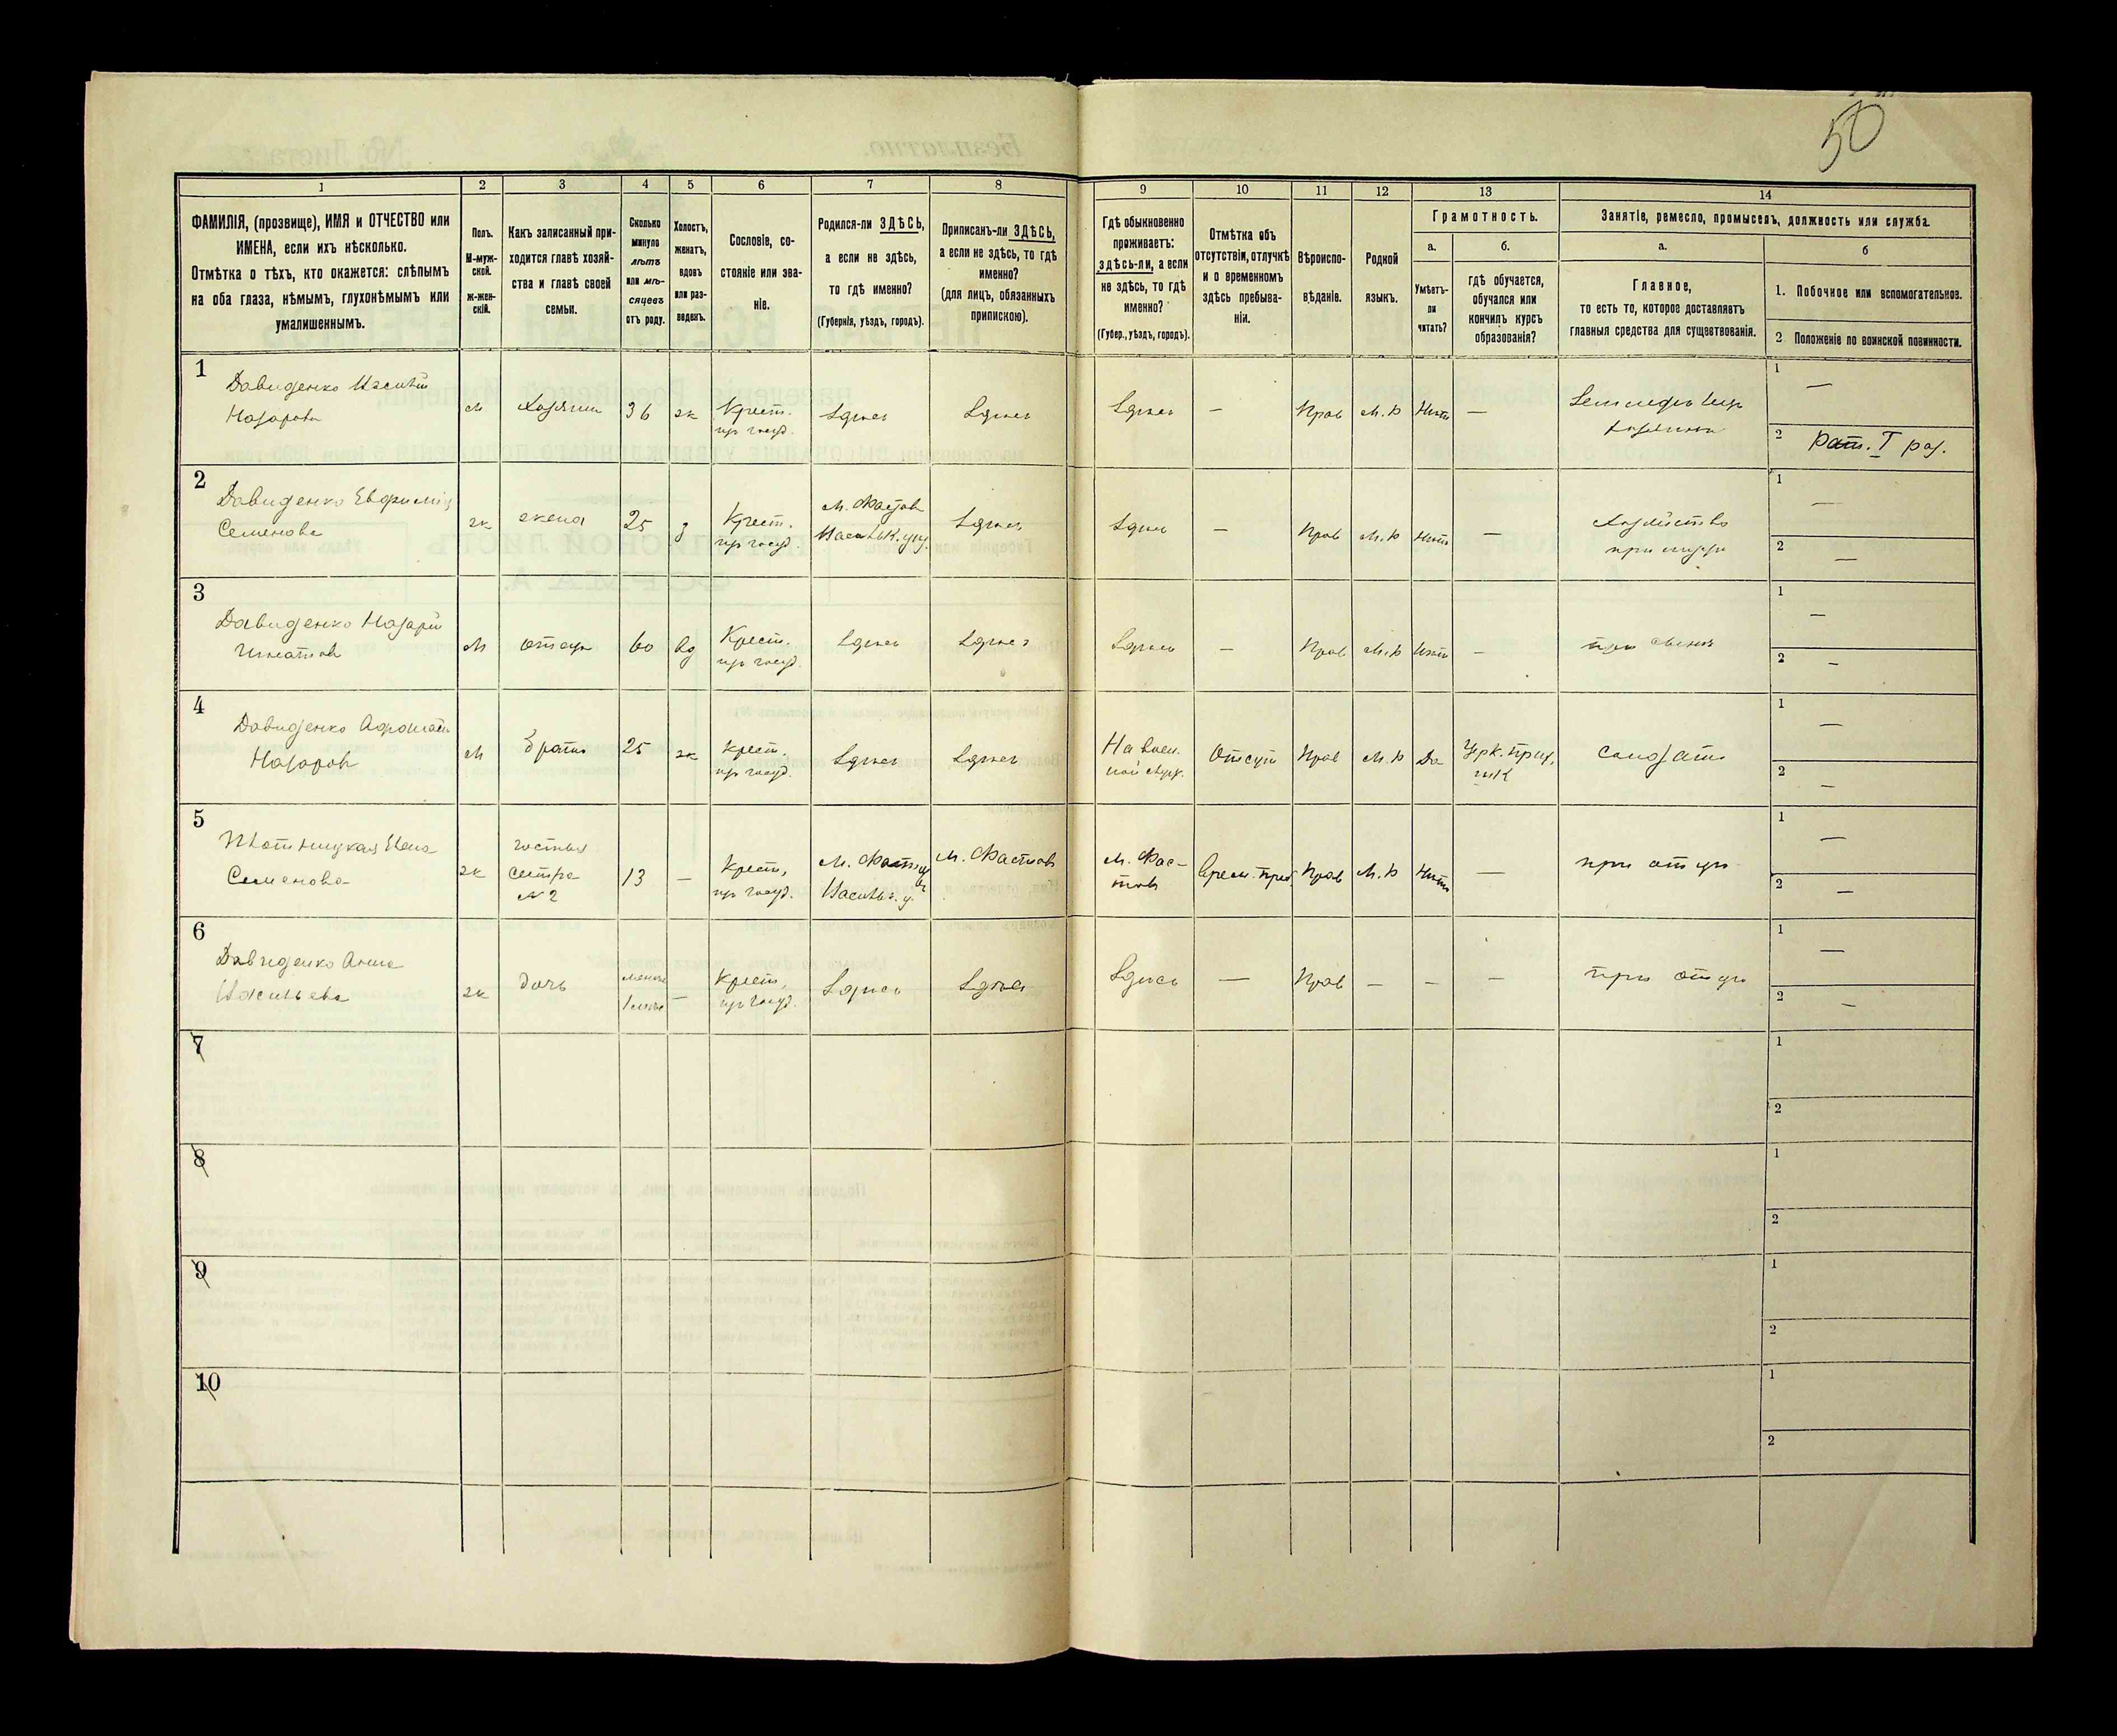 50
1 2 3 4 5 6 7 8 9 10 11 12 13 14
ФАМИЛІЯ, (прозвище), ИМЯ и ОТЧЕСТВО или
ИМЕНА, если ихъ нѣсколько.
Отмѣтка о тѣхъ, кто окажется: слѣпымъ
на оба глаза, нѣмымъ, глухонѣмымъ или
умалишеннымъ.
Полъ.
М-муж-
ской.
ж-жен-
скій.
Какъ записанный при-
ходится главѣ хозяй-
ства и главѣ своей
семьи.
Сколько
минуло
лѣтъ
или мѣ-
сяцевъ
отъ роду.
Холостъ,
женатъ,
вдовъ
или раз-
веденъ.
Сословіе, со-
стояніе или зва-
ніе.
Родился-ли ЗДѢСЬ,
а если не здѣсь,
то гдѣ именно?
(Губернія, уѣздъ, городъ).
Приписанъ-ли ЗДѢСЬ,
а если не здѣсь, то гдѣ
именно?
(для лицъ, обязанныхъ
припискою).
Гдѣ обыкновенно
проживаетъ:
здѣсь-ли, а если
не здѣсь, то гдѣ
именно?
(Губер., уѣздъ, городъ).
Отмѣтка объ
отсутствіи, отлучкѣ
и о временномъ
здѣсь пребыва-
ніи.
Вѣроиспо-
вѣданіе.
Родной
языкъ.
Грамотность.
а.
Умѣетъ-
ли
читать?
б.
гдѣ обучается,
обучался или
кончилъ курсъ
образованія?
Занятіе, ремесло, промыселъ, должность или служба.
а.
Главное,
то есть то, которое доставляетъ
главныя средства для существованія.
б
1. Побочное или вспомогательное.
2 Положеніе по воинской повинности.
1
Давиденко
Назаровъ
м Хозяинъ 36 ж Крест. Здѣсь Здѣсь Здѣсь — Прав М.Р Нѣтъ —
1 —
2 Рат. I раз.
2
Давиденко Евфимія
Семенова
ж жена 25 з Крест. м. Фастов Здѣсь Здѣсь — Прав М.Р Нѣтъ — Хозяйство
при мужѣ
1 —
2 —
3
Давиденко Назарій
Игнатов
м отецъ 60 вд Крест. Здѣсь Здѣсь Здѣсь — Прав М.Р Нѣтъ — при сынѣ
1 —
2 —
4
Давиденко
Назаров
м братъ 25 ж Крест. Здѣсь Здѣсь На воен. Отсут Прав М.Р Да солдатъ
1 —
2 —
5
Семенова
ж гостья
сестра
№ 2
13 — Крест, м. Фастов м. Фастовъ м. Фас-
товъ
Врем. преб. Прав М.Р Нѣтъ — при отцѣ
1 —
2 —
6
Давиденко Анна
Васильева
ж дочь менѣе
1 мѣс
— Крест, Здѣсь Здѣсь Здѣсь — Прав — — — при отцѣ
1 —
2 —
7
1
2
8
1
2
9
1
2
10
1
2